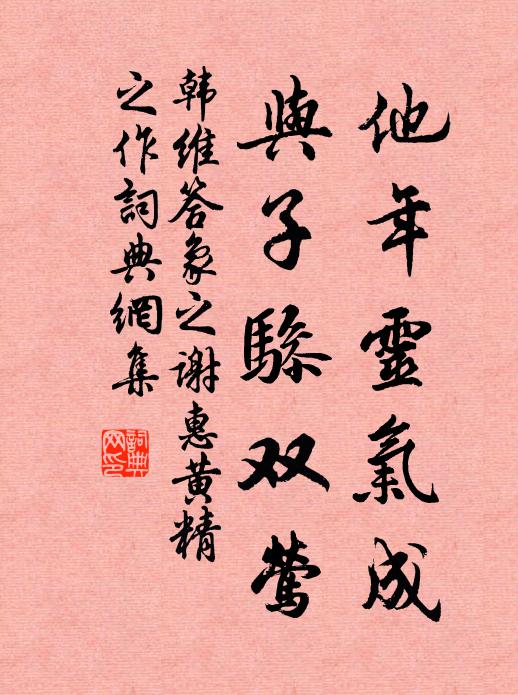 他年靈氣成
與子驂双鶯
韩維答象之謝惠黄精
之作詞典網集
詞典
网印